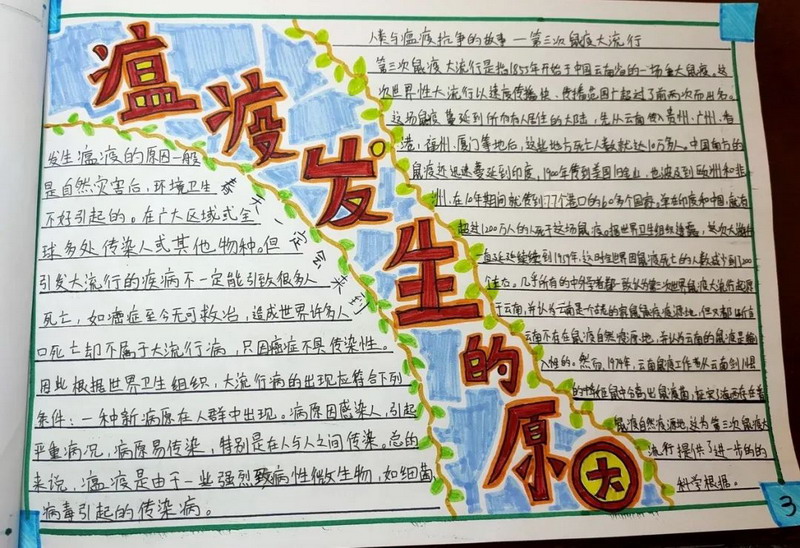 瘟疫发生的原因
发生瘟疫的原因一般
是自然灾害后，环境卫生
不好引起的。在广大区域或全
球多处传染人或其他物种。但
引发大流行的疾病不一定能引致很多人
死亡，如癌症至今无可救治，造成世界许多人
口死亡却不属于大流行病，只因癌症不具传染性。
因此根据世界卫生组织，大流行病的出现应符合下列
条件：一种新病原在人群中出现。病原因感染人，引起
严重病况，病原易传染，特别是在人与人之间传染。总的
来说，瘟疫是由于一些强烈致病性微生物，如细菌
病毒引起的传染病。
春天一定会来到
人类与瘟疫抗争的故事—第三次鼠疫大流行
第三次鼠疫大流行是指1855年开始于中国云南省的一场重大鼠疫。这
次世界性大流行以速度传播快、传播范围广超过了前两次而出名。
这场鼠疫蔓延到所有有人居住的大陆，先从云南传入贵州、广州、香
港、福州、厦门等地后，这些地方死亡人数就达10万多人。中国南方的
鼠疫还迅速蔓延到印度，1900年传到美国旧金山，也波及到欧洲和非
洲，在10年期间就传到77个港口的60多个国家。单在印度和中国，就有
超过1200万人的人死于这场鼠疫。据世界卫生组织透露，这次大流行
一直延续到1959年，这时全世界因鼠疫死亡的人数减少到200
几乎所有的中外学者都一致认为第三次世界鼠疫大流行起源
于云南，并认为云南是个古老的家鼠鼠疫疫源地，但又都
云南不存在鼠疫自然疫源地，并认为云南的鼠疫是输
入性的。然而，1974年，云南鼠疫工作者从云南剑川县
鼠疫自然疫源地，这为第三次鼠疫大
流行提供了进一步的的
科学根据。
3